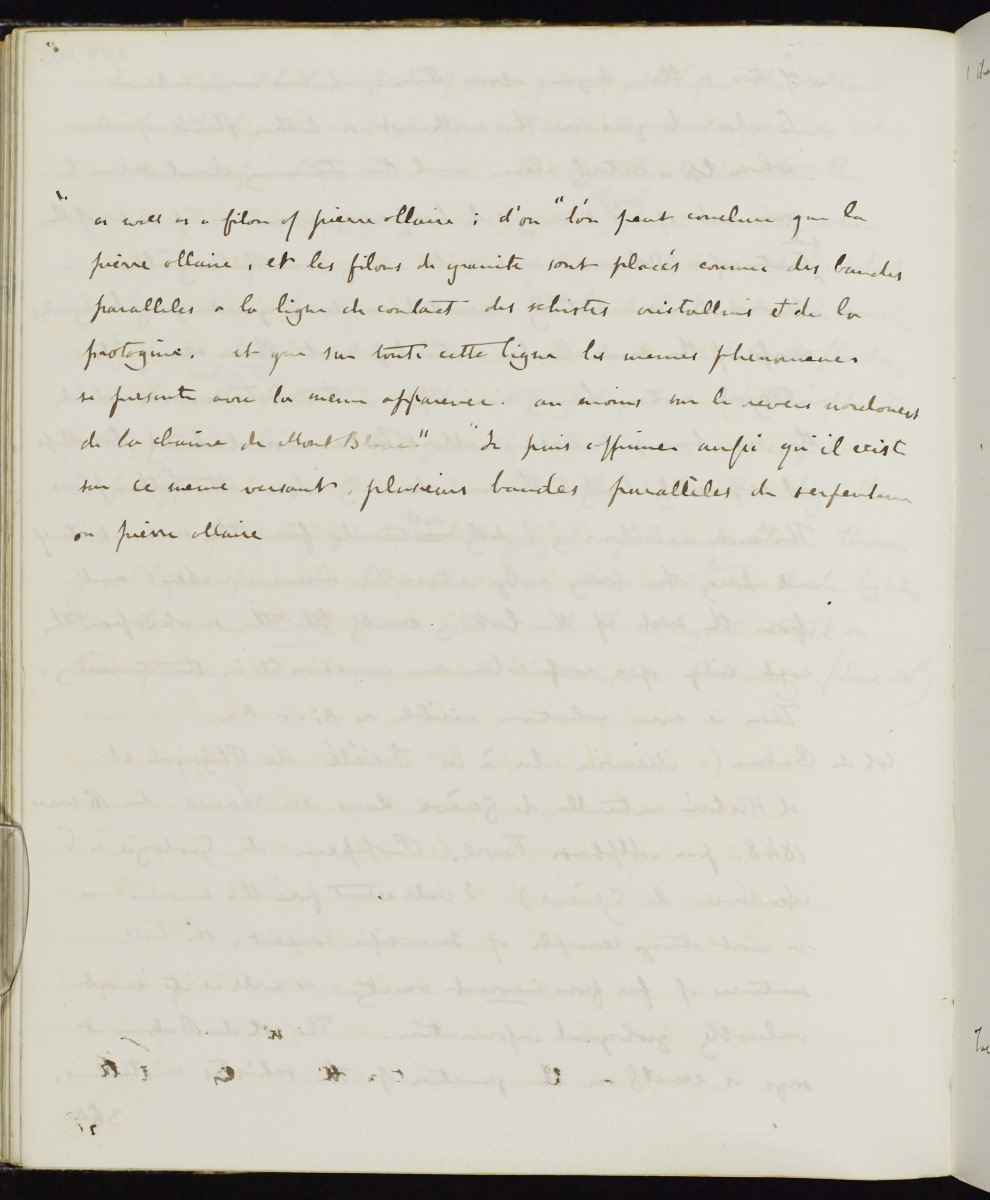 " as well as a filon of pierre ollaire ; d'ou "l'on peut conclure que la
pierre ollaire, et les filons de granite sont placés comme des bandes
paralleles a la ligne de contact des schistes cristallins et de la
protogine. et que sur toute cette ligne les memes phenomenes
se presente avec la meme apparence. au moins sur le revers nordouest
de la chaine de Mont Blanc" "Je puis affirmer aussi qu'il existe
sur ce meme versant, plusieurs bandes paralleles de serpentine
ou pierre ollaire